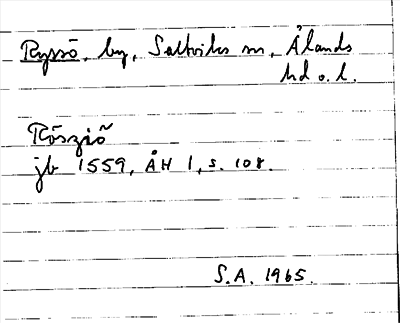 Ryssö, by, Saltviks sn, Ålands
hd o. l.
Rösziö
jb 1559, ÅH 1, s. 108.
S.A. 1965.